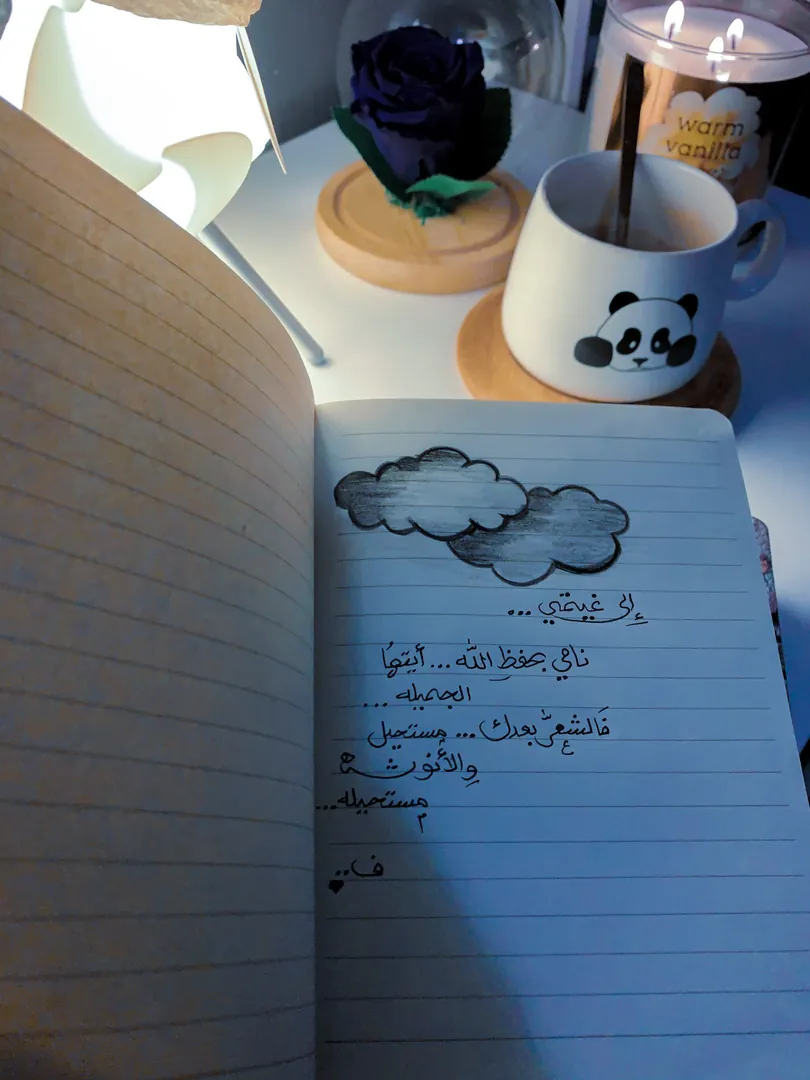 warm
vanilla
إلى غيمتي ...
نامي بحفظِ اللّه ... أيتهُا
الجميله ...
فَالشعرُ بعدك ... مستحيل
وِالأُنوثة
مستحيله ...
ف ..